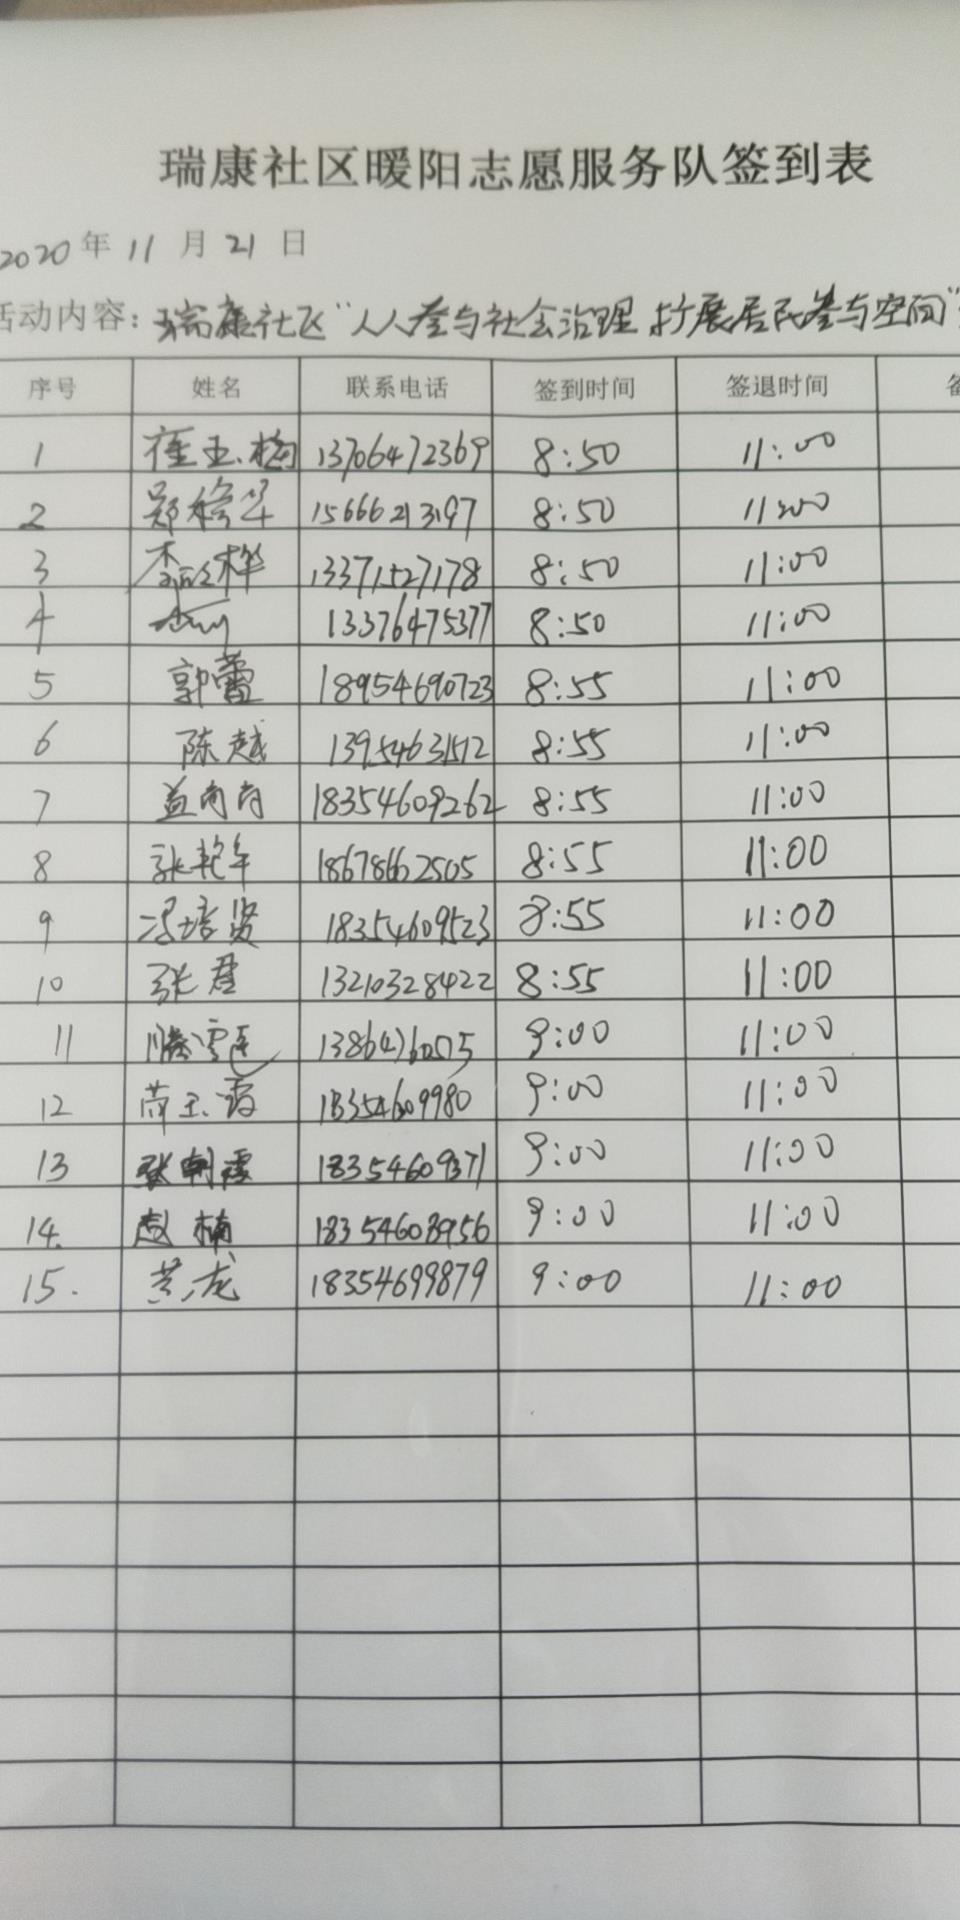 瑞康社区暖阳志愿服务队签到表
2020年11月21日
活动内容：瑞康社区"人人参与社会治理 扩展居民参与空间"
序号 姓名 联系电话 签到时间 签退时间 备
1 崔玉梅 13706472369 8:50 11:00
2 郑 华 15666213197 8:50 11:00
3 桦 13371527178 8:50 11:00
4 13376475377 8:50 11:00
5 郭蕾 18954690723 8:55 11:00
6 陈越 13954631512 8:55 11:00
7 盖肖肖 18354609262 8:55 11:00
8 张艳午 18678662505 8:55 11:00
9 冯培贤 18354609523 8:55 11:00
10 张君 13210328422 8:55 11:00
11 滕雪 9:00 11:00
12 玉霞 18354609980 9:00 11:00
13 张朝霞 18354609371 9:00 11:00
14. 赵楠 18354608956 9:00 11:00
15. 黄龙 18354699879 9:00 11:00